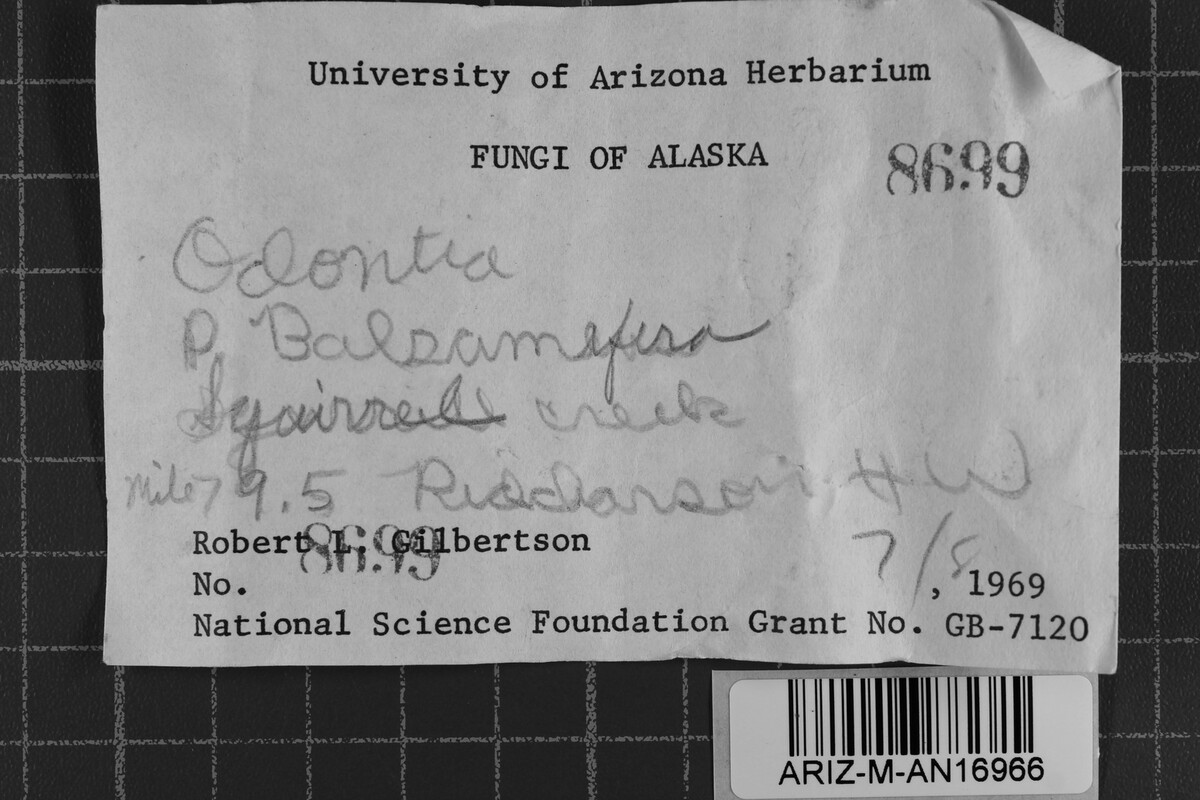 University of Arizona Herbarium
FUNGI OF ALASKA
8699
Odontia
P. Balsamifera
Squirrel creek
mile 79.5 Richarson HW
Robert L. Gilbertson
8699
7/8, 1969
No.
National Science Foundation Grant No. GB-7120
ARIZ-M-AN16966